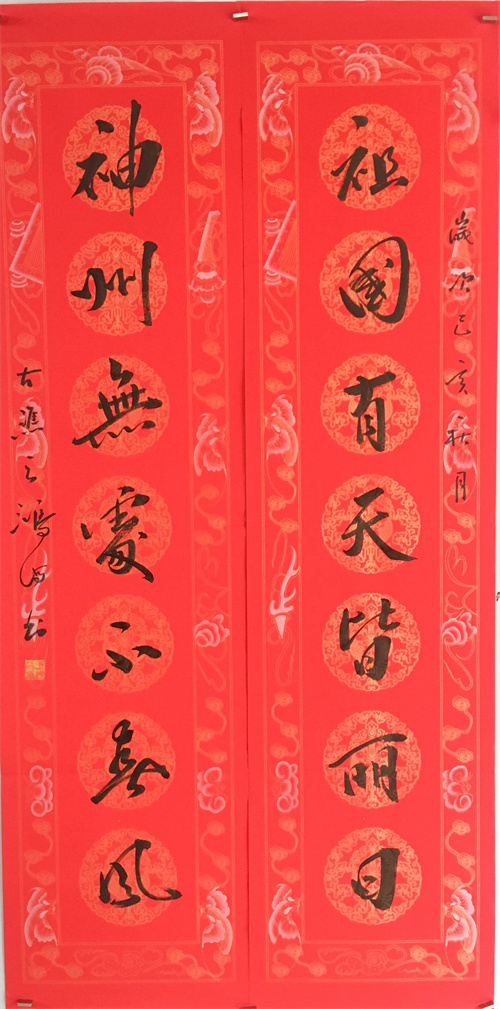 歲次己亥秋月
祖國有天皆丽日
神州無處不春風
古譙之鴻海书